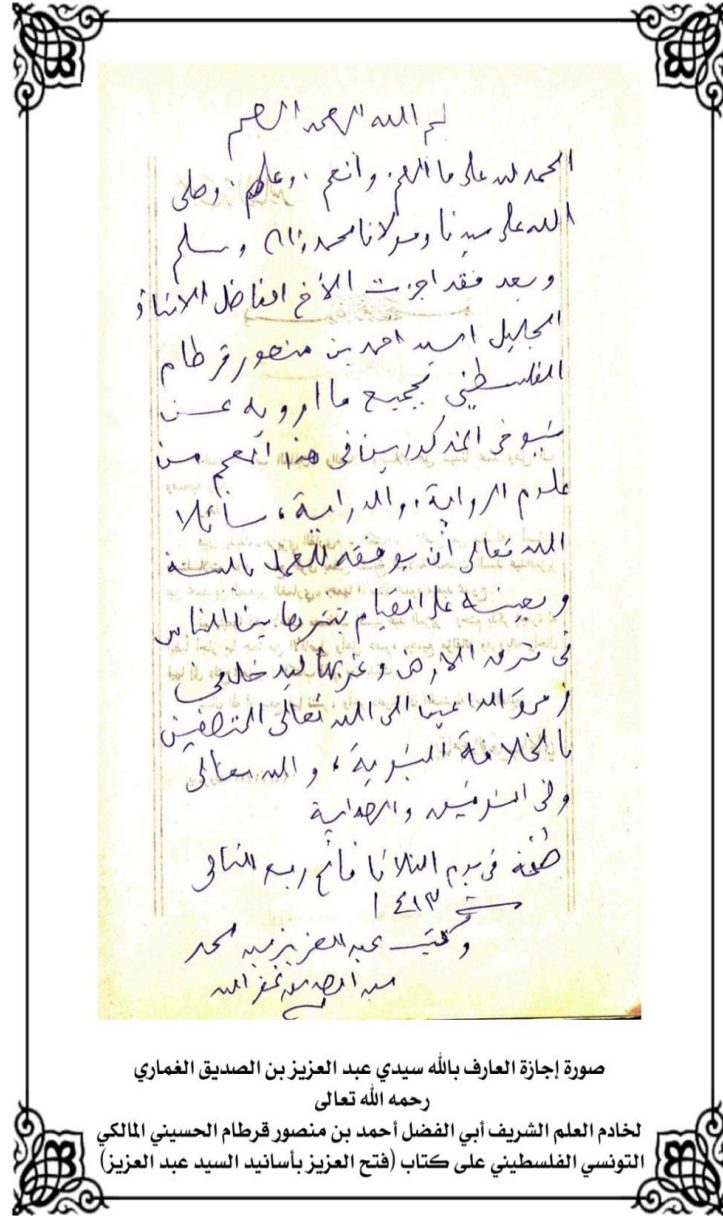 بسم الله الرحمن الرحيم
الحمد لله على ما ألهم. وأنعم. وعلم. وصلى
الله على سيدنا ومولانا محمد وآله وسلم
وبعد فقد اجزت الأخ الفاضل الاستاذ
الجليل السيد احمد بن منصور قرطام
الفلسطيني بجميع ما أرويه عن
شيوخي المذكورين في هذا المعجم من
علوم الرواية، والدراية، سائلا
الله تعالى أن يوفقه للعمل بالسنة
ويعينه على القيام بنشرها بين الناس
في شرق الارض وغربها ليدخل في
زمرة الداعين الى الله تعالى المتصفين
بالخلافة النبوية، والله تعالى
ولي التوفيق والهداية
طنجة في يوم الثلاثا فاتح ربيع الثاني
سنة ١٤١٣
وكتب عبد العزيز بن محمد
بن الصديق غفر الله
صورة إجازة العارف بالله سيدي عبد العزيز بن الصديق الغماري
رحمه الله تعالى
لخادم العلم الشريف أبي الفضل أحمد بن منصور قرطام الحسيني المالكي
التونسي الفلسطيني على كتاب (فتح العزيز بأسانيد السيد عبد العزيز)